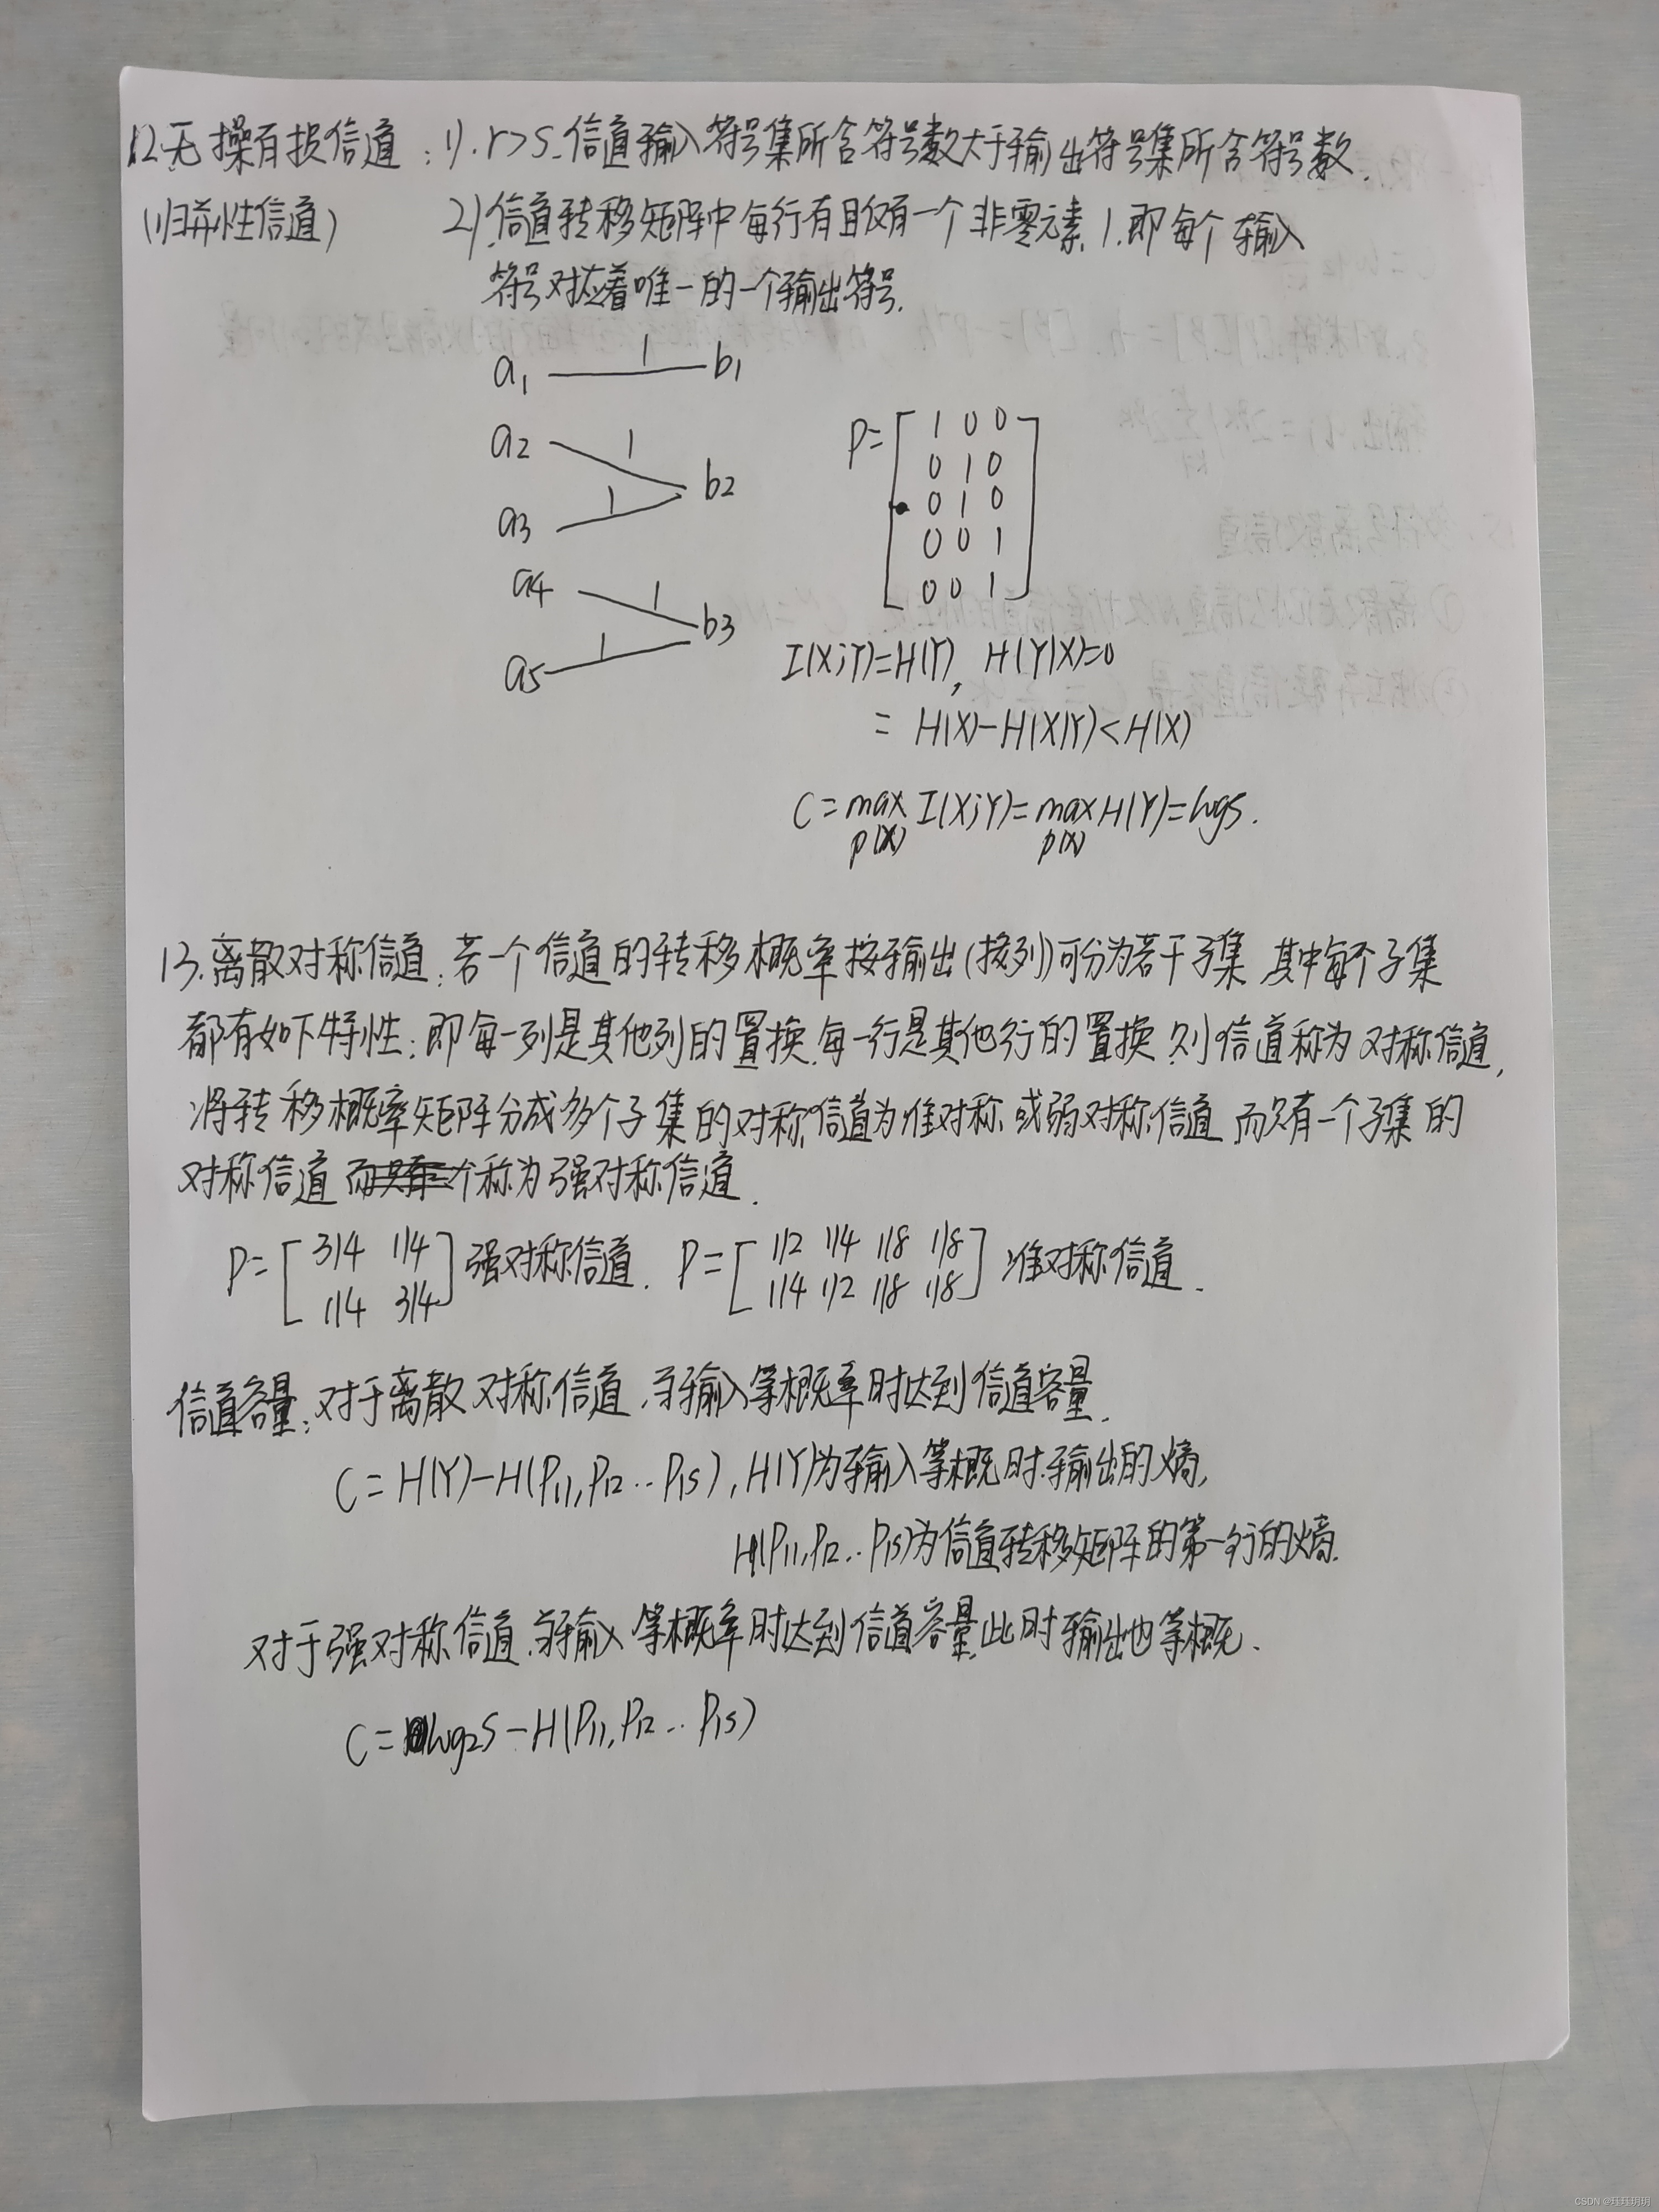 12.无操有损信道：1). r>s.信道输入符号集所含符号数大于输出符号集所含符号数.
(归并性信道) 2).信道转移矩阵中每行有且仅有一个非零元素1.即每个输入
符号对应着唯一的一个输出符号.
a1 1 b1
a2 1
a3 1 b2
a4 1
a5 1 b3
P=[1 0 0
0 1 0
0 1 0
0 0 1
0 0 1]
I(X;Y)=H(Y), H(Y|X)=0
= H(X)-H(X|Y)<H(X)
C=max I(X;Y)=max H(Y)=logs.
p(x) p(x)
13.离散对称信道：若一个信道的转移概率按输出(按列)可分为若干子集 其中每个子集
都有如下特性：即每一列是其他列的置换.每一行是其他行的置换.则信道称为对称信道,
将转移概率矩阵分成多个子集的对称信道为准对称或弱对称信道 而只有一个子集的
对称信道 称为强对称信道.
P=[3/4 1/4
1/4 3/4] 强对称信道. P=[1/2 1/4 1/8 1/8
1/4 1/2 1/8 1/8] 准对称信道.
信道容量：对于离散对称信道,当输入等概率时达到信道容量.
C=H(Y)-H(P11,P12...P1s),H(Y)为输入等概时输出的熵,
H(P11,P12...P1s)为信道转移矩阵的第一行的熵.
对于强对称信道.当输入等概率时达到信道容量.此时输出也等概.
C=log2S-H(P11,P12...P1s)
CSDN